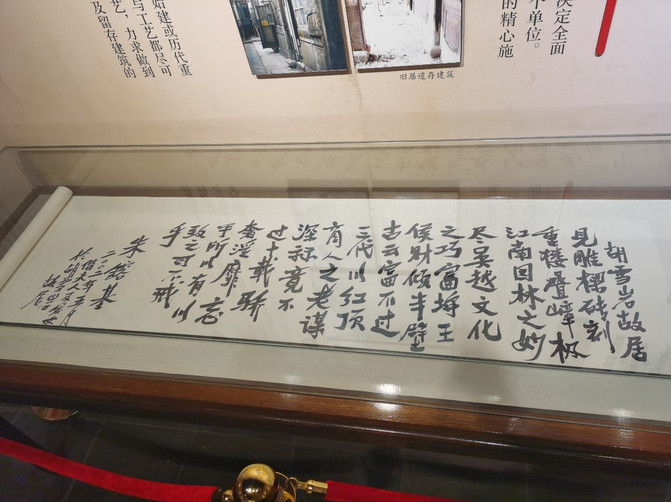 决定全面
个单位。
的精心施
始建或历代重
与工艺都尽可
艺，力求做到
及留存建筑的
旧居遗存建筑
胡雪岩故居
見雕樑砖刻
重楼叠嶂极
江南园林之妙
尽吴越文化
之巧富埒王
侯财倾半壁
古云富不过
三代以红顶
商人之老谋
深算竟不
过十载骄
奢淫靡忘
乎所以有以
致之可不戒
乎
朱镕基